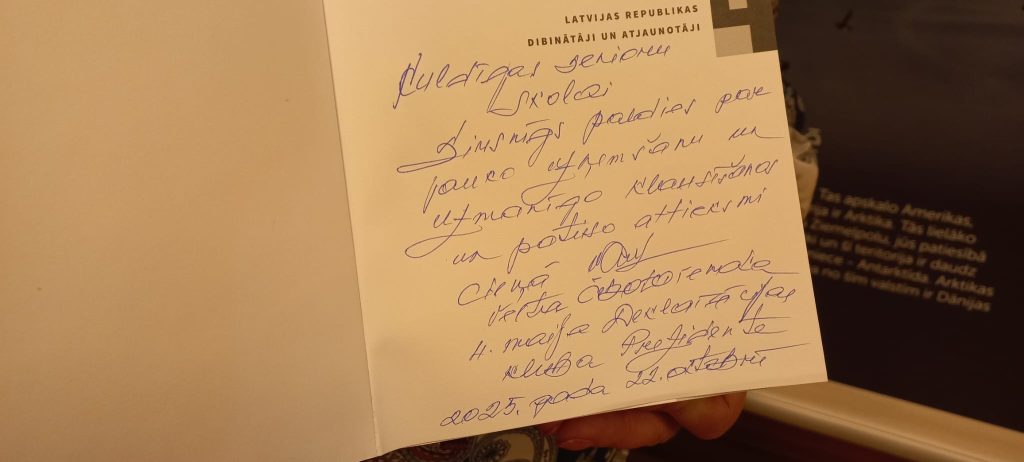 LATVIJAS REPUBLIKAS
DIBINĀTĀJI UN ATJAUNOTĀJI
Kuldīgas senioru
skolai
Sirsnīgs paldies par
jauko uzņemšanu un
uzmanīgo klausīšanos
un patieso attieksmi
Cieņā
Velta Čebotarenoka
4. maija Deklarācijas
kluba Prezidente
2025. gada 22. oktobrī
Tas apskalo Amerikas,
ija ir Arktika. Tās lielāko
Ziemeļpolu, jūs patiesībā
un šī teritorija ir daudz
- Antarktīda. Arktikas
no šīm valstīm ir Dānijas